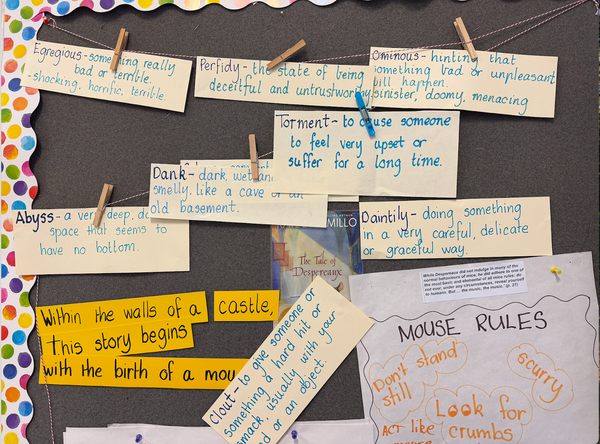 Egregious - something really
bad or terrible.
- shocking, horrific, terrible.
Perfidy - the state of being
deceitful and untrustworthy.
Ominous - hinting that
something bad or unpleasant
will happen.
sinister, doomy, menacing
Torment - to cause someone
to feel very upset or
suffer for a long time.
Dank - dark, wet and
smelly. like a cave or an
old basement.
Abyss - a very deep, da
space that seems to
have no bottom.
Daintily - doing something
in a very careful, delicate
or graceful way.
MILLO
The Tale of
Despereaux
While Despereaux did not indulge in many of the
normal behaviours of mice, he did adhere to one of
the most basic and elemental of all mice rules: do
not ever, under any circumstances, reveal yourself
to humans. But ... the music, the music. " (p. 27)
Within the walls of a castle,
this story begins
with the birth of a mou
Clout - to give someone or
something a hard hit or
smack, usually with your
or an object.
MOUSE RULES
Don't stand
still
scurry
Look for
crumbs
ACT like